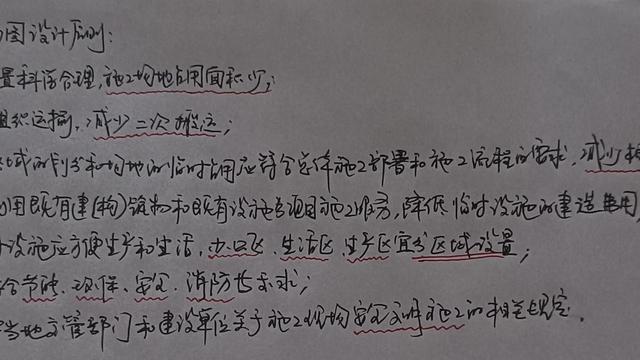 图设计原则:
置科学合理,施工场地占用面积少;
组织运输,减少二次搬运;
区域的划分和场地的临时占用应符合总体施工部署和施工流程的要求,减少相
用既有建(构)筑物和既有设施为项目施工服务,降低临时设施的建造费用,
设施应方便生产和生活,办公区、生活区、生产区宜分区域设置;
合节能、环保、安全、消防等要求;
当地主管部门和建设单位关于施工现场安全文明施工的相关规定.